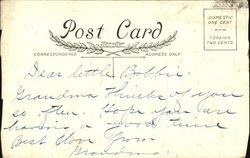 Post Card
CORRESPONDENCE
ADDRESS ONLY
DOMESTIC
ONE CENT
FOREIGN
TWO CENTS
Dear little Bobbie.
Grandma thinks of you
so often. Hope you are
having a good time
Best love from
Grandma.